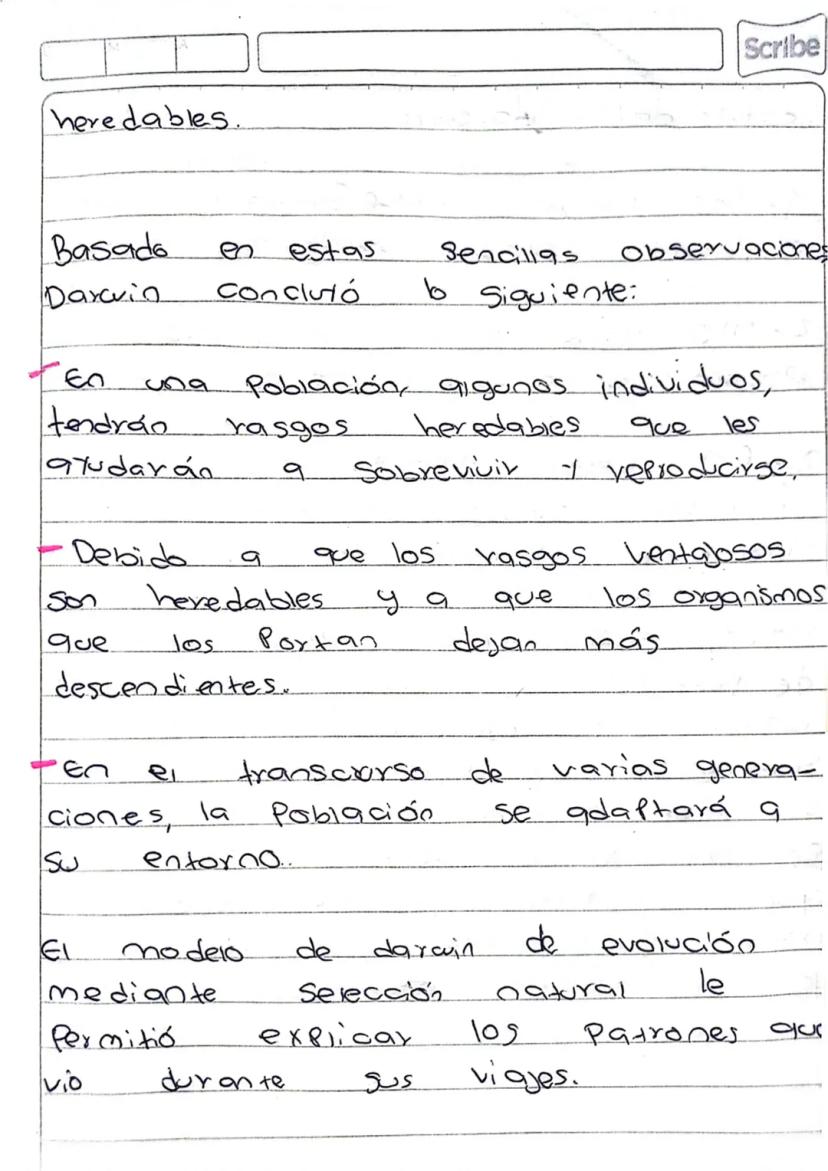 Scribe
heredables.
Basado en estas sencillas observaciones
Darwin concluyó lo siguiente:
- En una Población, algunos individuos,
tendrán rasgos heredables que les
ayudarán a sobrevivir y reproducirse.
- Debido a que los rasgos ventajosos
son heredables y a que los organismos
que los Portan dejan más
descendientes.
- En el transcurso de varias genera-
ciones, la Población se adaptará a
su entorno.
El modelo de darwin de evolución
mediante selección natural le
Permitió explicar los Patrones que
vio durante sus viajes.